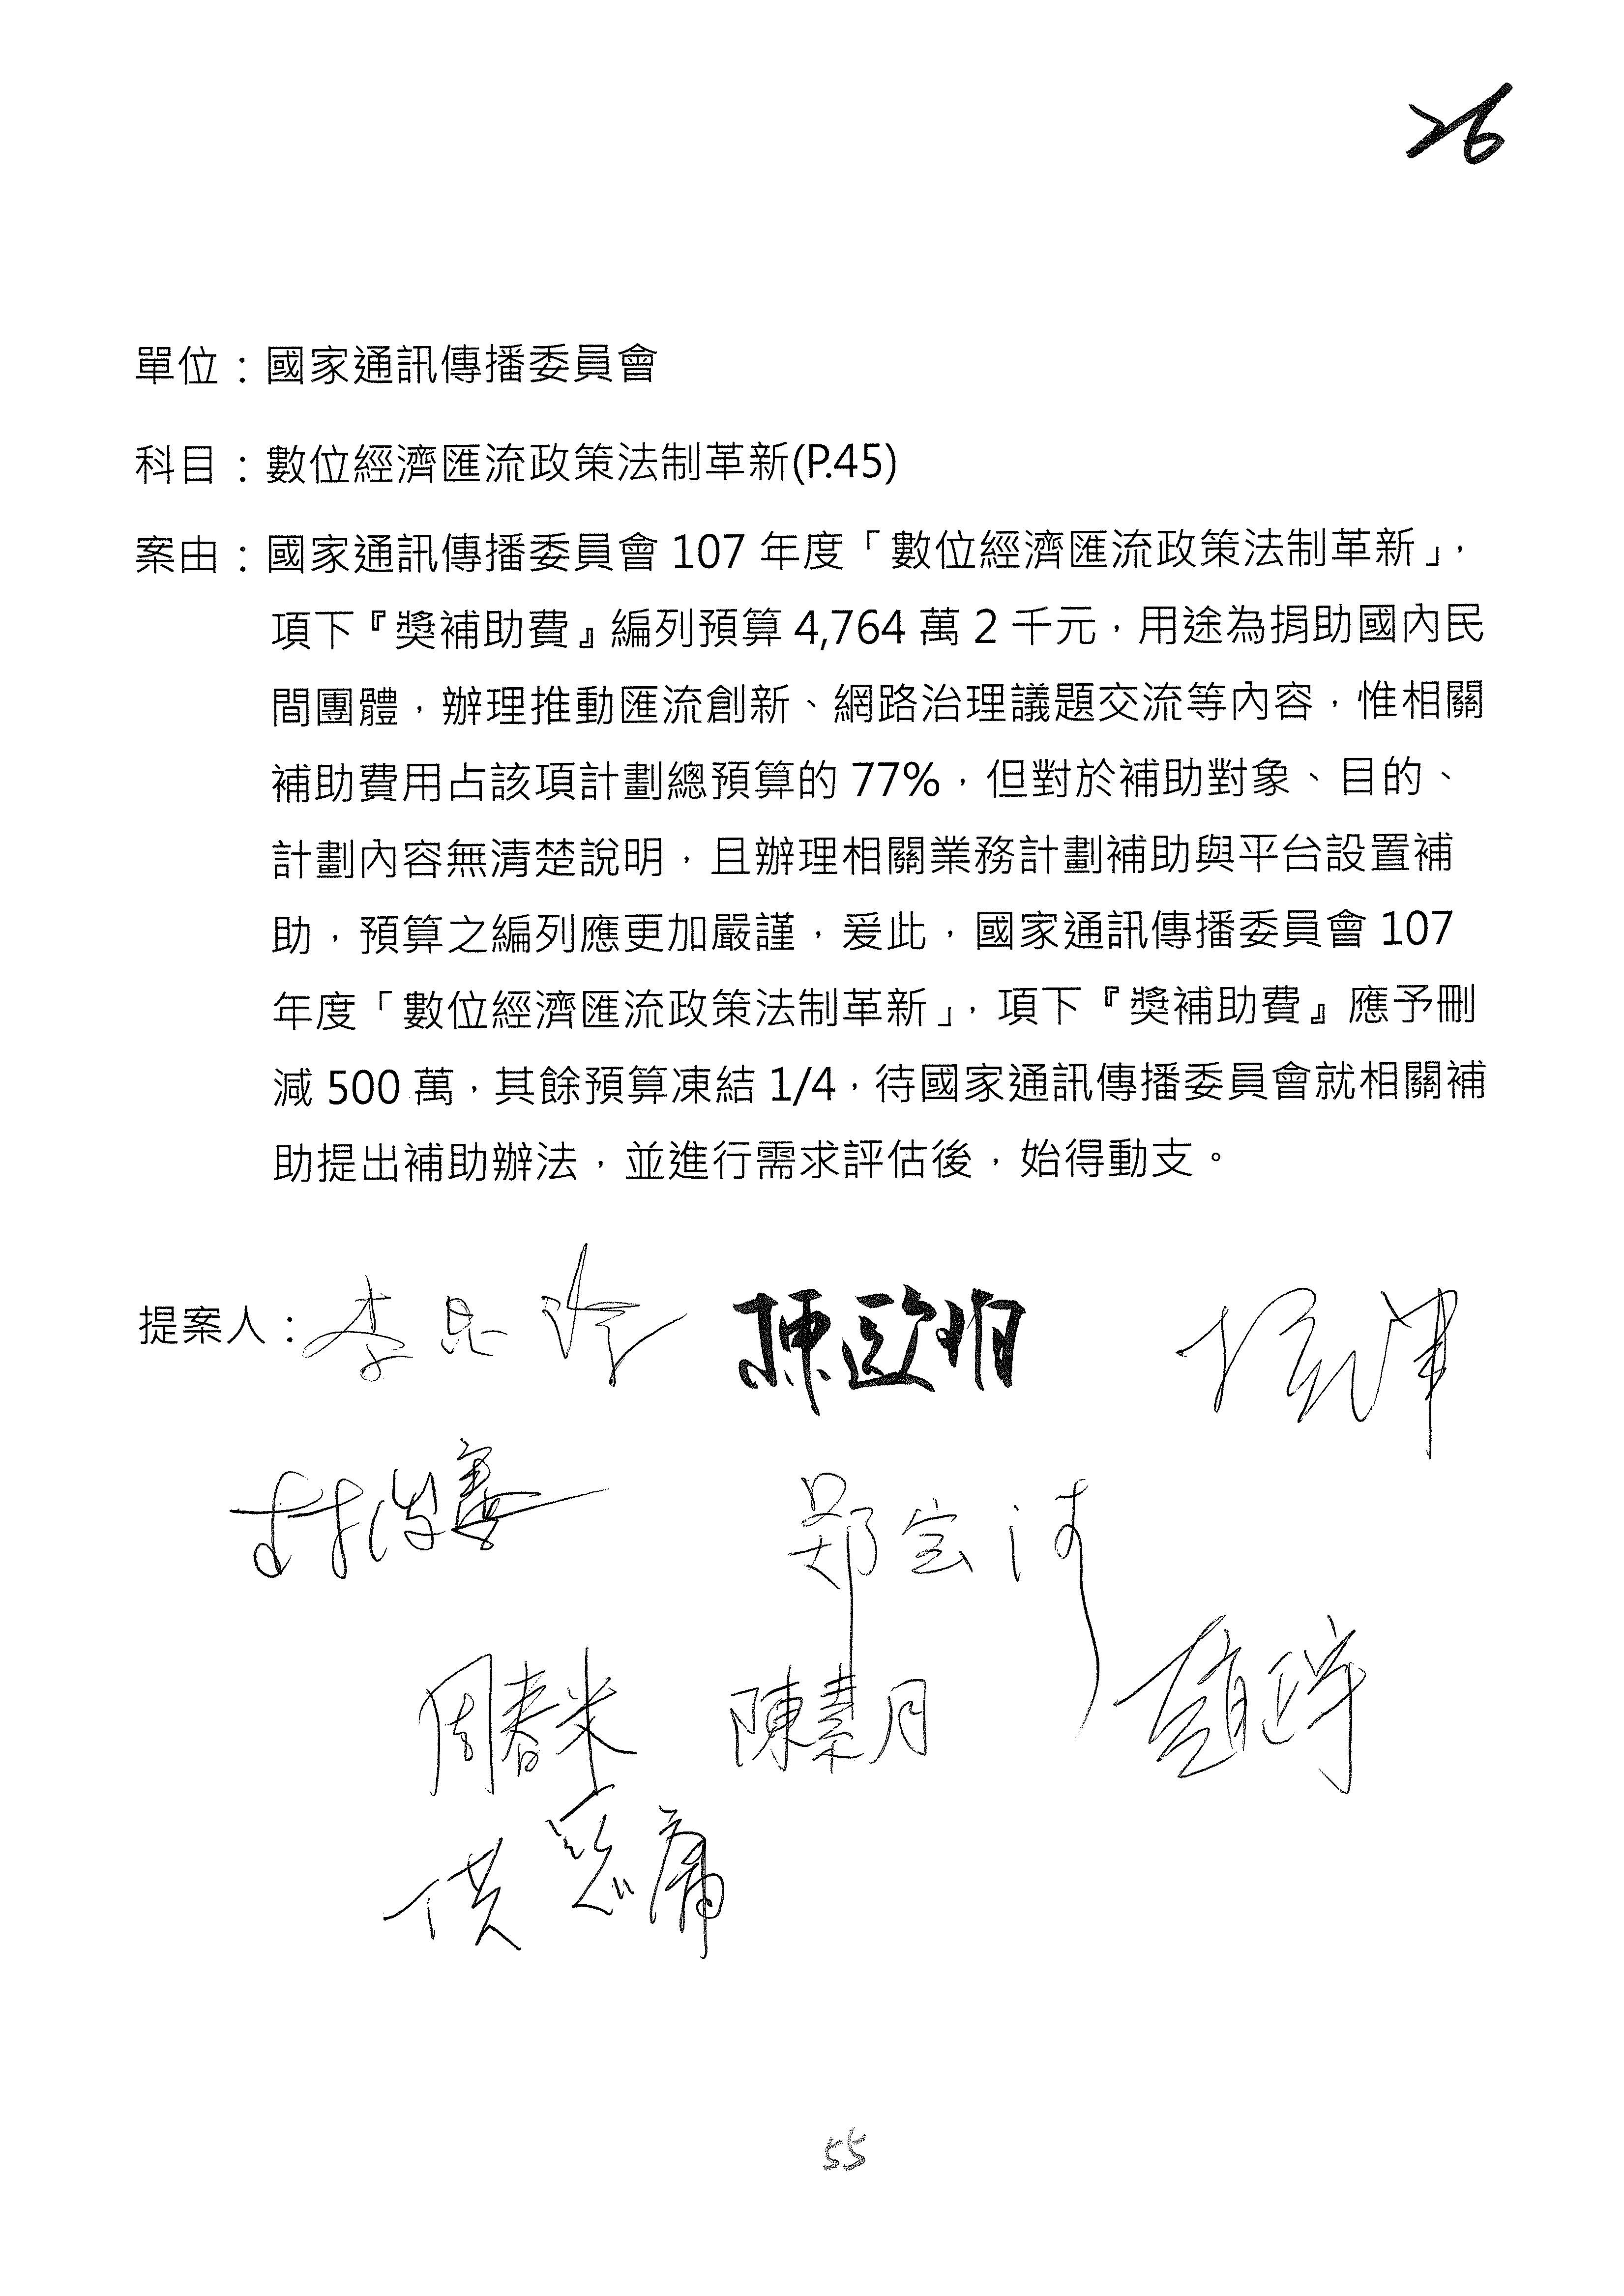 26
單位：國家通訊傳播委員會
科目：數位經濟匯流政策法制革新(P.45)
案由：國家通訊傳播委員會 107 年度「數位經濟匯流政策法制革新」，
項下『獎補助費』編列預算 4,764 萬 2 千元，用途為捐助國內民
間團體，辦理推動匯流創新、網路治理議題交流等內容，惟相關
補助費用占該項計劃總預算的 77%，但對於補助對象、目的、
計劃內容無清楚說明，且辦理相關業務計劃補助與平台設置補
助，預算之編列應更加嚴謹，爰此，國家通訊傳播委員會 107
年度「數位經濟匯流政策法制革新」，項下『獎補助費』應予刪
減 500 萬，其餘預算凍結 1/4，待國家通訊傳播委員會就相關補
助提出補助辦法，並進行需求評估後，始得動支。
提案人：李昆澤 陳歐珀
林俊憲 鄭宝清
周春米 陳素月 趙正宇
洪宗熠
55